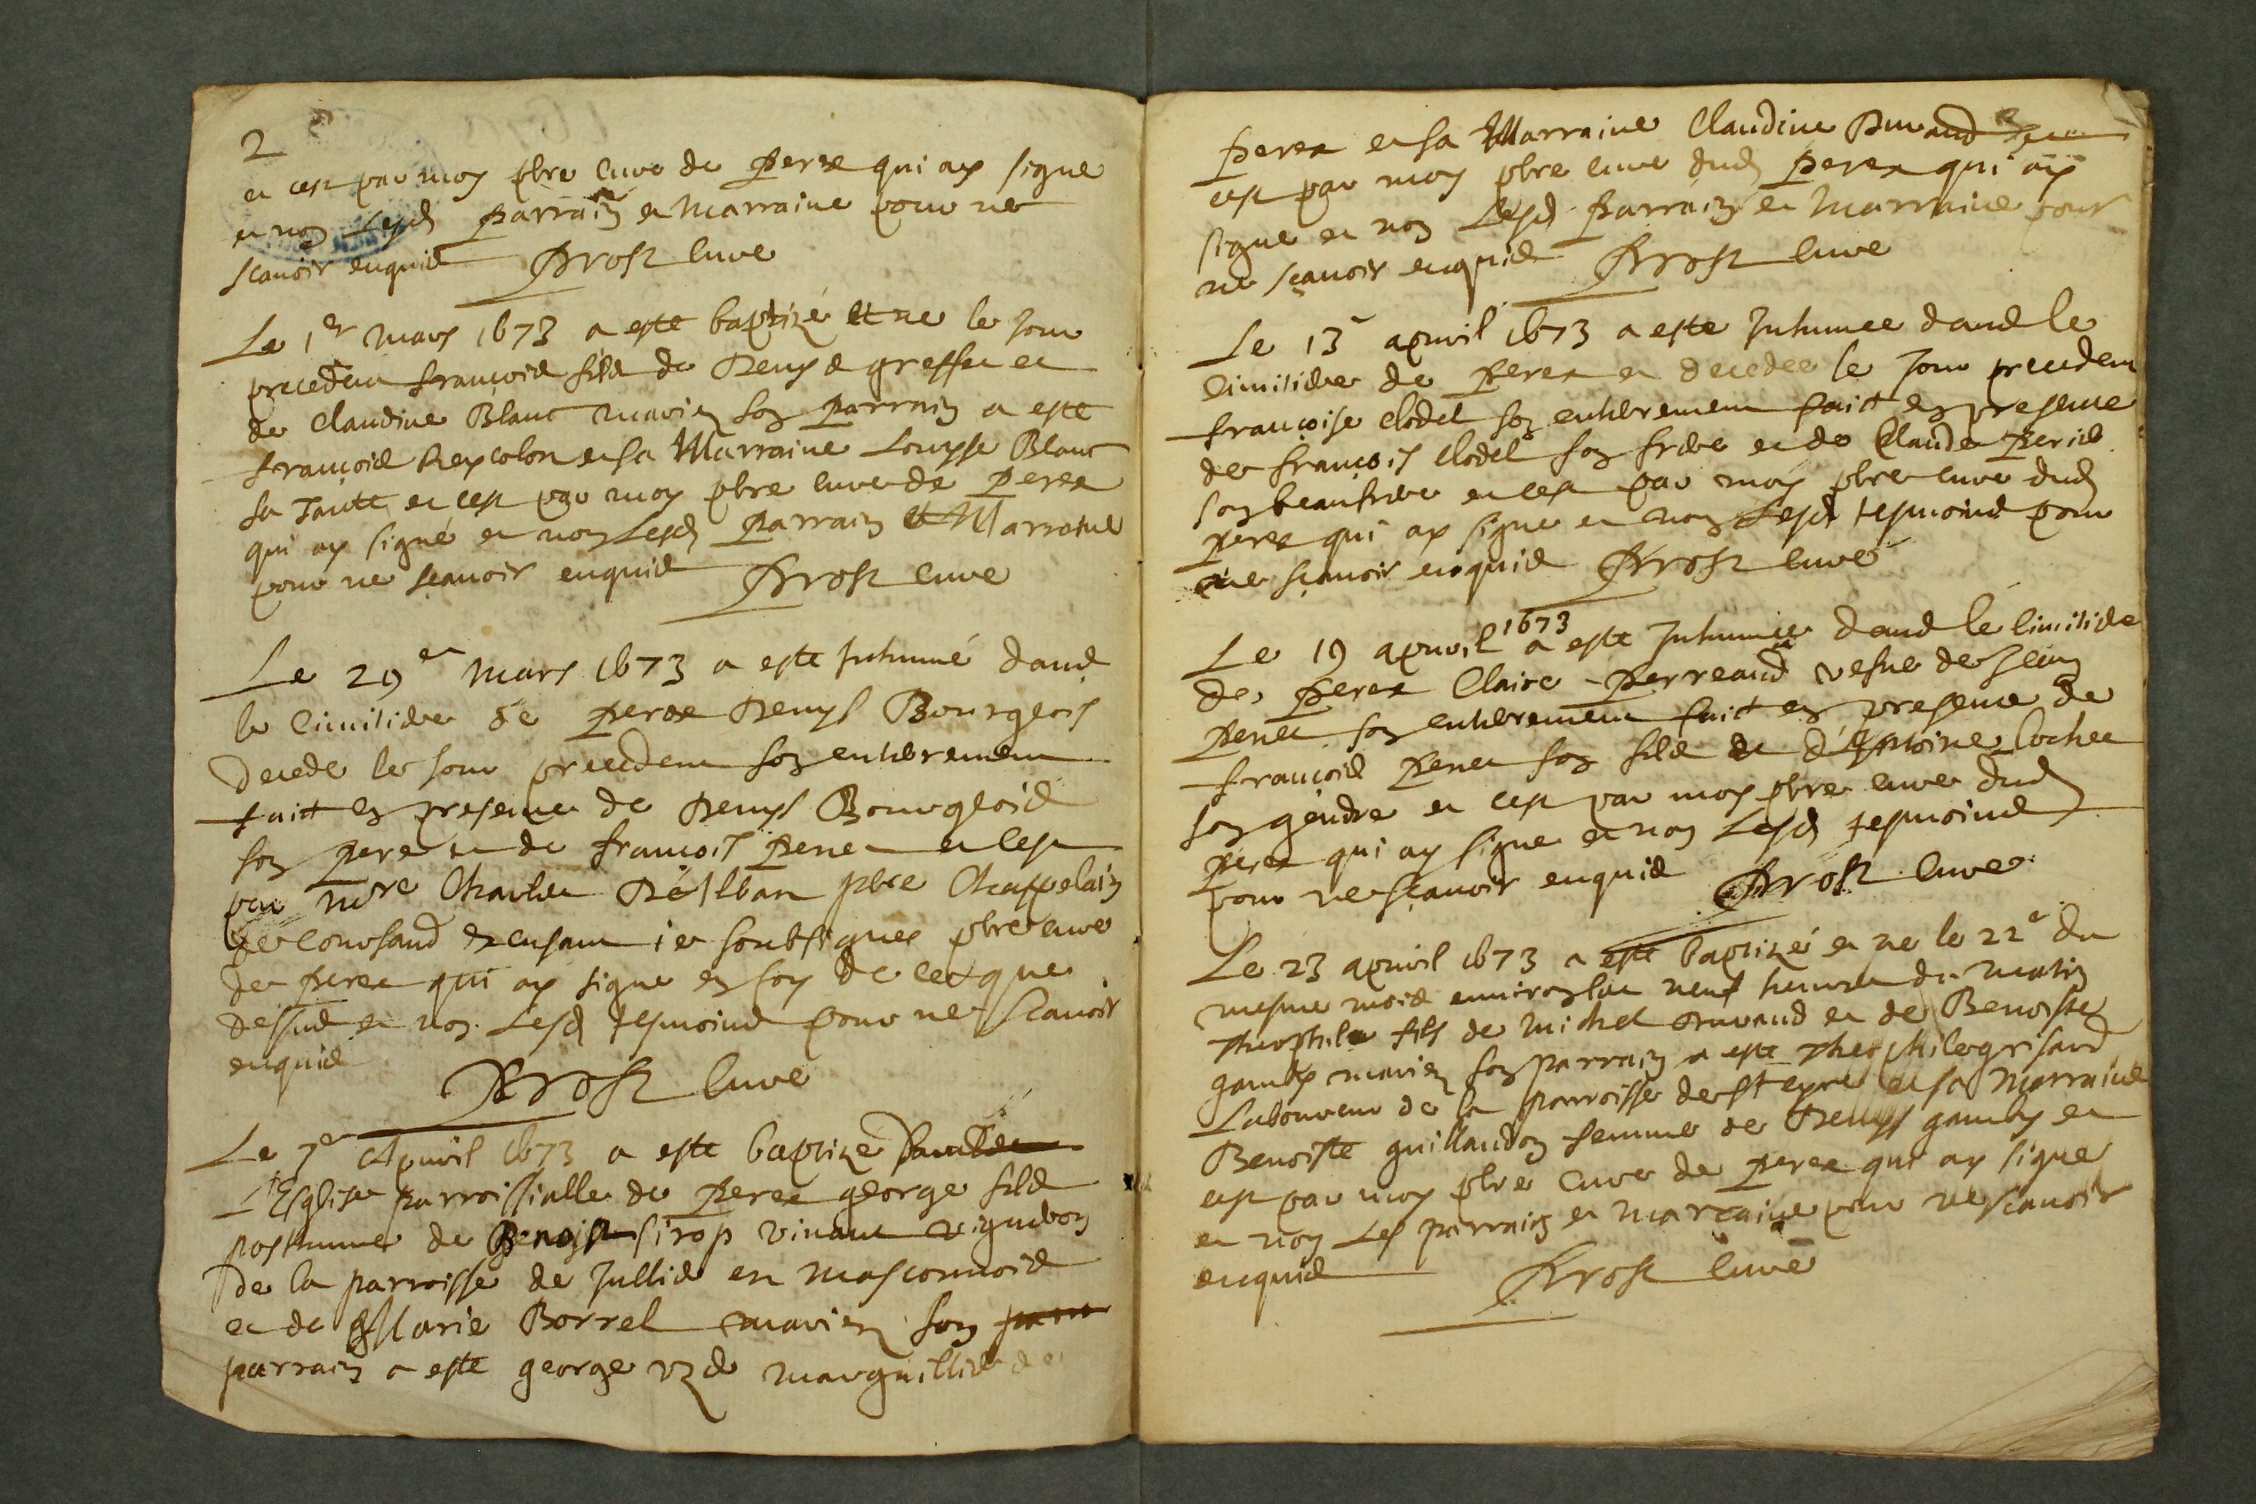 2
et ce par moy pbre curé de Perex qui ay signe
et non Lesd parrain et Marraine pour ne
scauoir enquis Prost curé
Le 1er Mars 1673 a este baptizé et ne le jour
precedent francois fils de Denys greffet et
de Claudine Blanc mariez son parrain a este
francois Reycolon et sa Marraine Louyse Blanc
sa Tante et ce par moy pbre curé de Perex
qui ay signé et non Lesd parrain et Marraine
pour ne scauoir enquis Prost curé
Le 29e Mars 1673 a este Inhumé dans
le cimitiere de Perex Denys Bourgeois
decede le jour precedent son enterrement
faict en presence de Denys Bourgeois
son pere et de francois Penet et ce
par mre Charles pbre Chappelain
de Coursans excusant je soubsignes pbre curé
de Perex qui ay signe en foy de ce que
dessus et non Lesd tesmoins pour ne scauoir
enquis
Prost curé
Le 7e Apuril 1673 a este baptize
L'Esglise parroissialle de Perex george fils
posthume de Benoist sirop viuant vigneron
de la parroisse de Jullié en masconnois
et de Marie Borrel mariez son
parrain a este george marguillier de
Perex et sa Marraine Claudine Durand et
ce par moy pbre curé dud Perex qui ay
signe et non Lesd parrain et Marraine pour
ne scauoir enquis Prost curé
Le 13e apuril 1673 a este Inhumee dans le
cimitiere de Perex et decedee le jour precedent
francoise Clodel son enterrement faict en presence
de francois Clodel son frere et de Claude Peris
son beaufrere et ce par moy pbre curé dud
Perex qui ay signe et non Lesd tesmoins pour
ne scauoir enquis Prost curé
Le 19 apuril 1673 a este Inhumee dans le cimitiere
de Perex Claire Perreaud vefue de Jean
Penet son enterrement faict en presence de
francois Penet son fils et d'Antoine Lochet
son gendre et ce par moy pbre curé dud
Perex qui ay signe et non Lesd tesmoins
pour ne scauoir enquis Prost curé
Le 23 apuril 1673 a este baptizé et ne le 22e du
mesme mois enuiron les neuf heures du matin
Theophile fils de Michel Durand et de Benoiste
gamby mariez son parrain a este Theophile grisard
Laboureur de la parroisse de st cyre et sa Marraine
Benoiste guillaudon femme de Denys gamby et
ce par moy pbre curé de Perex qui ay signe
et non Les parrain et marraine pour ne scauoir
enquis Prost curé